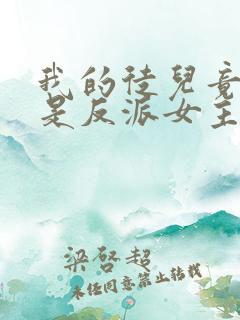 我的徒兒竟
是反派女主
梁啓超
未经同意禁止转载